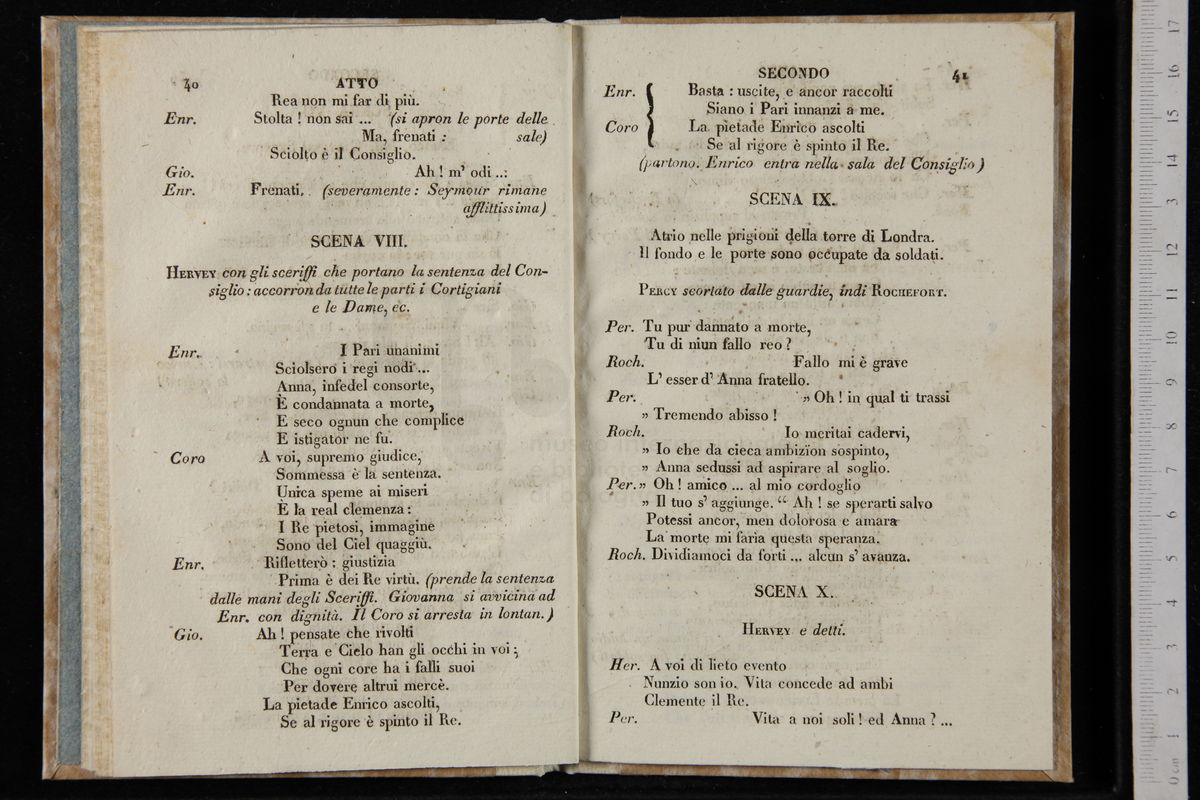 40 ATTO
Rea non mi far di più.
Enr. Stolta ! non sai ... (si apron le porte delle
Ma, frenati : sale)
Sciolto è il Consiglio.
Gio. Ah ! m' odi ..:
Enr. Frenati. (severamente : Seymour rimane
afflittissima)
SCENA VIII.
HERVEY con gli sceriffi che portano la sentenza del Con-
siglio : accorron da tutte le parti i Cortigiani
e le Dame, ec.
Enr. I Pari unanimi
Sciolsero i regi nodi ...
Anna, infedel consorte,
È condannata a morte,
E seco ognun che complice
E istigator ne fu.
Coro A voi, supremo giudice,
Sommessa è la sentenza.
Unica speme ai miseri
È la real clemenza :
I Re pietosi, immagine
Sono del Ciel quaggiù.
Enr. Rifletterò : giustizia
Prima è dei Re virtù. (prende la sentenza
dalle mani degli Sceriffi. Giovanna si avvicina ad
Enr. con dignità. Il Coro si arresta in lontan.)
Gio. Ah ! pensate che rivolti
Terra e Cielo han gli occhi in voi ;
Che ogni core ha i falli suoi
Per dovere altrui mercè.
La pietade Enrico ascolti,
Se al rigore è spinto il Re.
SECONDO 41
Enr. Basta : uscite, e ancor raccolti
Siano i Pari innanzi a me.
Coro La pietade Enrico ascolti
Se al rigore è spinto il Re.
(partono. Enrico entra nella sala del Consiglio)
SCENA IX.
Atrio nelle prigioni della torre di Londra.
Il fondo e le porte sono occupate da soldati.
PERCY scortato dalle guardie, indi ROCHEFORT.
Per. Tu pur dannato a morte,
Tu di niun fallo reo ?
Roch. Fallo mi è grave
L' esser d' Anna fratello.
Per. » Oh ! in qual ti trassi
» Tremendo abisso !
Roch. Io meritai cadervi,
» Io che da cieca ambizion sospinto,
» Anna sedussi ad aspirare al soglio.
Per. » Oh ! amico ... al mio cordoglio
» Il tuo s' aggiunge. “ Ah ! se sperarti salvo
Potessi ancor, men dolorosa e amara
La morte mi faria questa speranza.
Roch. Dividiamoci da forti ... alcun s' avanza.
SCENA X.
HERVEY e detti.
Her. A voi di lieto evento
Nunzio son io. Vita concede ad ambi
Clemente il Re.
Per. Vita a noi soli ! ed Anna ? ...
0 cm 1 2 3 4 5 6 7 8 9 10 11 12 13 14 15 16 17